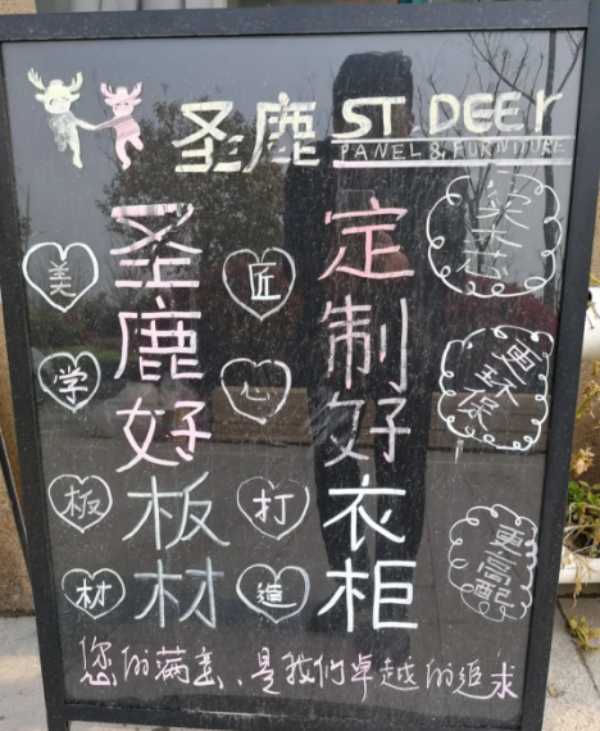 圣鹿 ST DEEr
PANEL & FURNITURE
圣鹿好板材
定制好衣柜
美学板材
匠心打造
实木芯
更环保
更高配
您的满意、是我们卓越的追求